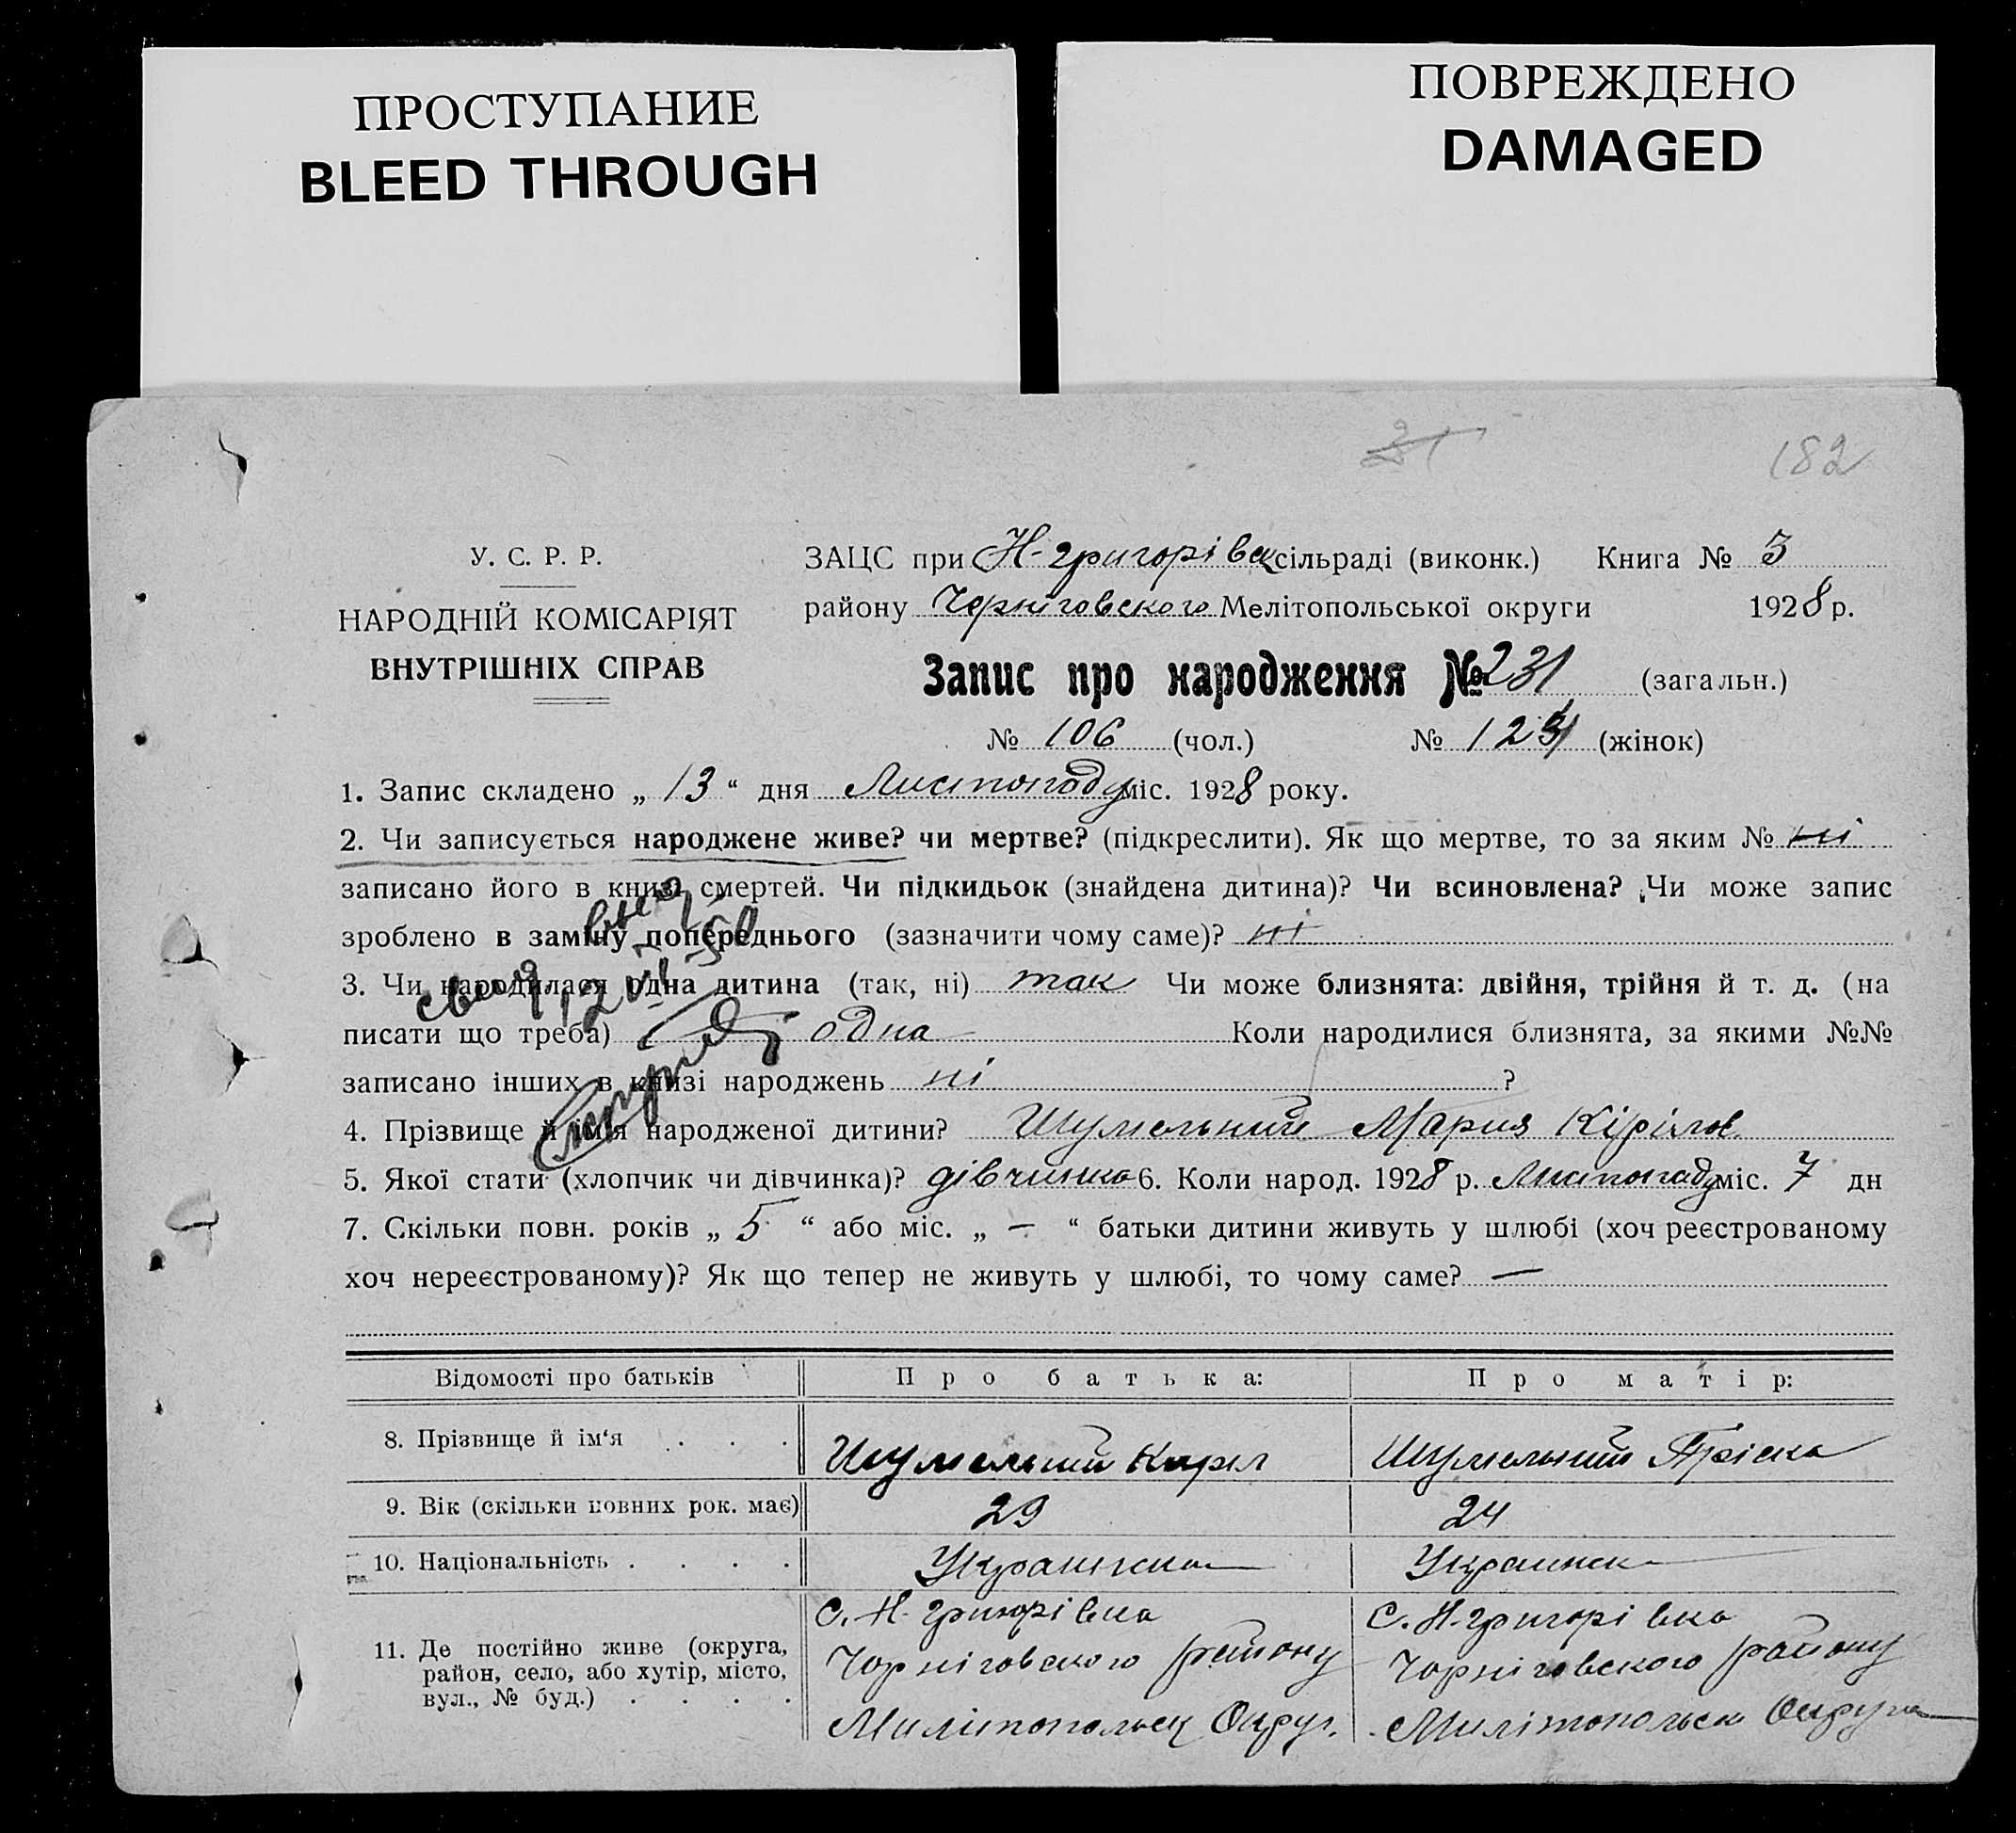 ПРОСТУПАНИЕ
BLEED THROUGH
ПОВРЕЖДЕНО
DAMAGED
31
182
У. С. Р. Р.
НАРОДНІЙ КОМІСАРІЯТ
ВНУТРІШНІХ СПРАВ
ЗАЦС при Н-григорівск сільраді (виконк.) Книга № 3
району Чернiговского Мелітопольської округи 1928 р.
Запис про народження № 231 (загальн.)
№ 106 (чол.) № 124 (жінок)
1. Запис складено „ 13 “ дня Листопаду міс. 1928 року.
2. Чи записується народжене живе? чи мертве? (підкреслити). Як що мертве, то за яким № ні
записано його в книзі смертей. Чи підкидьок (знайдена дитина)? Чи всиновлена? Чи може запис
зроблено в заміну попереднього (зазначити чому саме)? ні
3. Чи народилася одна дитина (так, ні) так Чи може близнята: двійня, трійня й т. д. (на
писати що треба) одна Коли народилися близнята, за якими №№
записано інших в книзі народжень ні ?
4. Прізвище й ім'я народженої дитини? Шумельний Мария Кірілов
5. Якої стати (хлопчик чи дівчинка)? дівчинка 6. Коли народ. 1928 р. Листопаду міс. 7 дн
7. Скільки повн. років „ 5 “ або міс. „ — “ батьки дитини живуть у шлюбі (хоч реєстрованому
хоч нереєстрованому)? Як що тепер не живуть у шлюбі, то чому саме? —
Відомості про батьків Про батька: Про матір:
8. Прізвище й ім‘я . . . Шумельний Кирил Шумельний
9. Вік (скільки повних рок. має) 29 24
10. Національність . . . . Украинка Украинка
11. Де постійно живе (округа,
район, село, або хутір, місто,
вул., № буд.) . . . .
С. Н-григорівка
Чорніговского району
Милітопольск Округ.
С. Н-григорівка
Чорніговского району
Милітопольск Округа